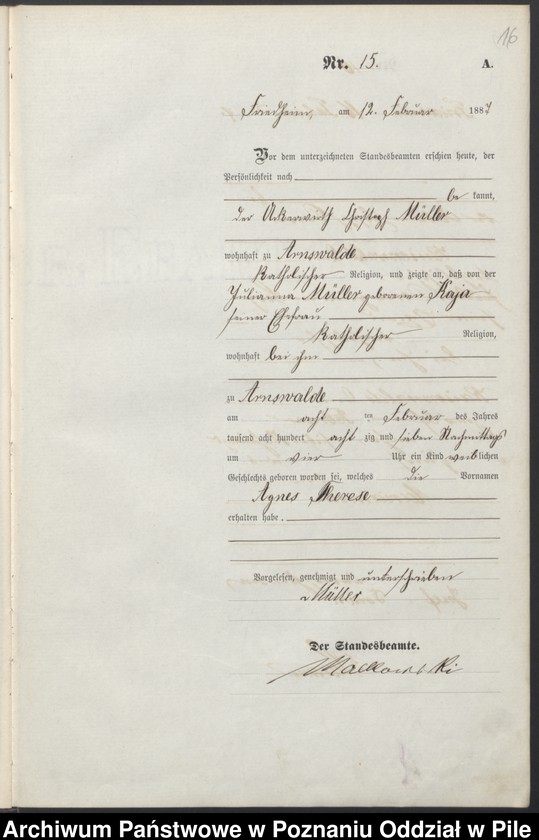 16
Nr. 15. A.
Friedheim, am 12. Februar 1887
Vor dem unterzeichneten Standesbeamten erschien heute, der
Persönlichkeit nach
be kannt,
der Ackerwirth Christoph Müller
wohnhaft zu Arnswalde
katholischer Religion, und zeigte an, daß von der
Julianna Müller geborenen Kaja
seiner Ehefrau
katholischer Religion,
wohnhaft bei ihm
zu Arnswalde
am acht ten Februar des Jahres
tausend acht hundert acht zig und sieben Nachmittags
um vier Uhr ein Kind weiblichen
Geschlechts geboren worden sei, welches die Vornamen
Agnes Therese
erhalten habe.
Vorgelesen, genehmigt und unterschrieben
Müller
Der Standesbeamte.
Archiwum Państwowe w Poznaniu Oddział w Pile